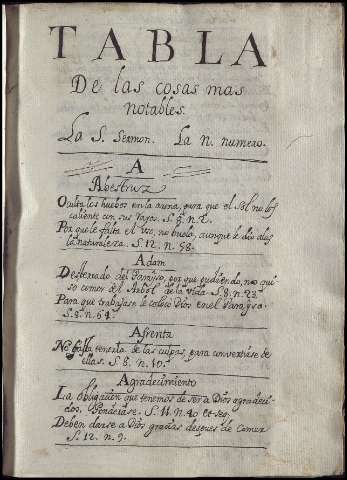 TABLA
De las cosas mas
notables.
La S. Sermon. La n. numero.
A
Abestruz
Oculta los huebos en la arena, para que el Sol no los
caliente con sus rayos. S. 9. n. 2.
Por que le falta el uso, no buela, aunque le dio alas
la naturaleza. S. 12. n. 58.
Adam
Desterrado del Parayso, por que pudiendo, no qui
so comer del Arbol de la vida. S. 8. n. 23.
Para que trabajase le coloco Dios en el Parayso.
S. 8. n. 64.
Afrenta
No basta tenerla de las culpas, para convertirse de
ellas. S. 8. n. 10.
Agradecimiento
La obligacion que tenemos de ser a Dios agradeci
dos. Ponderase. S. 11. n. 40 et seq.
Deben darse a Dios gracias despues de comer
S. 12. n. 9.